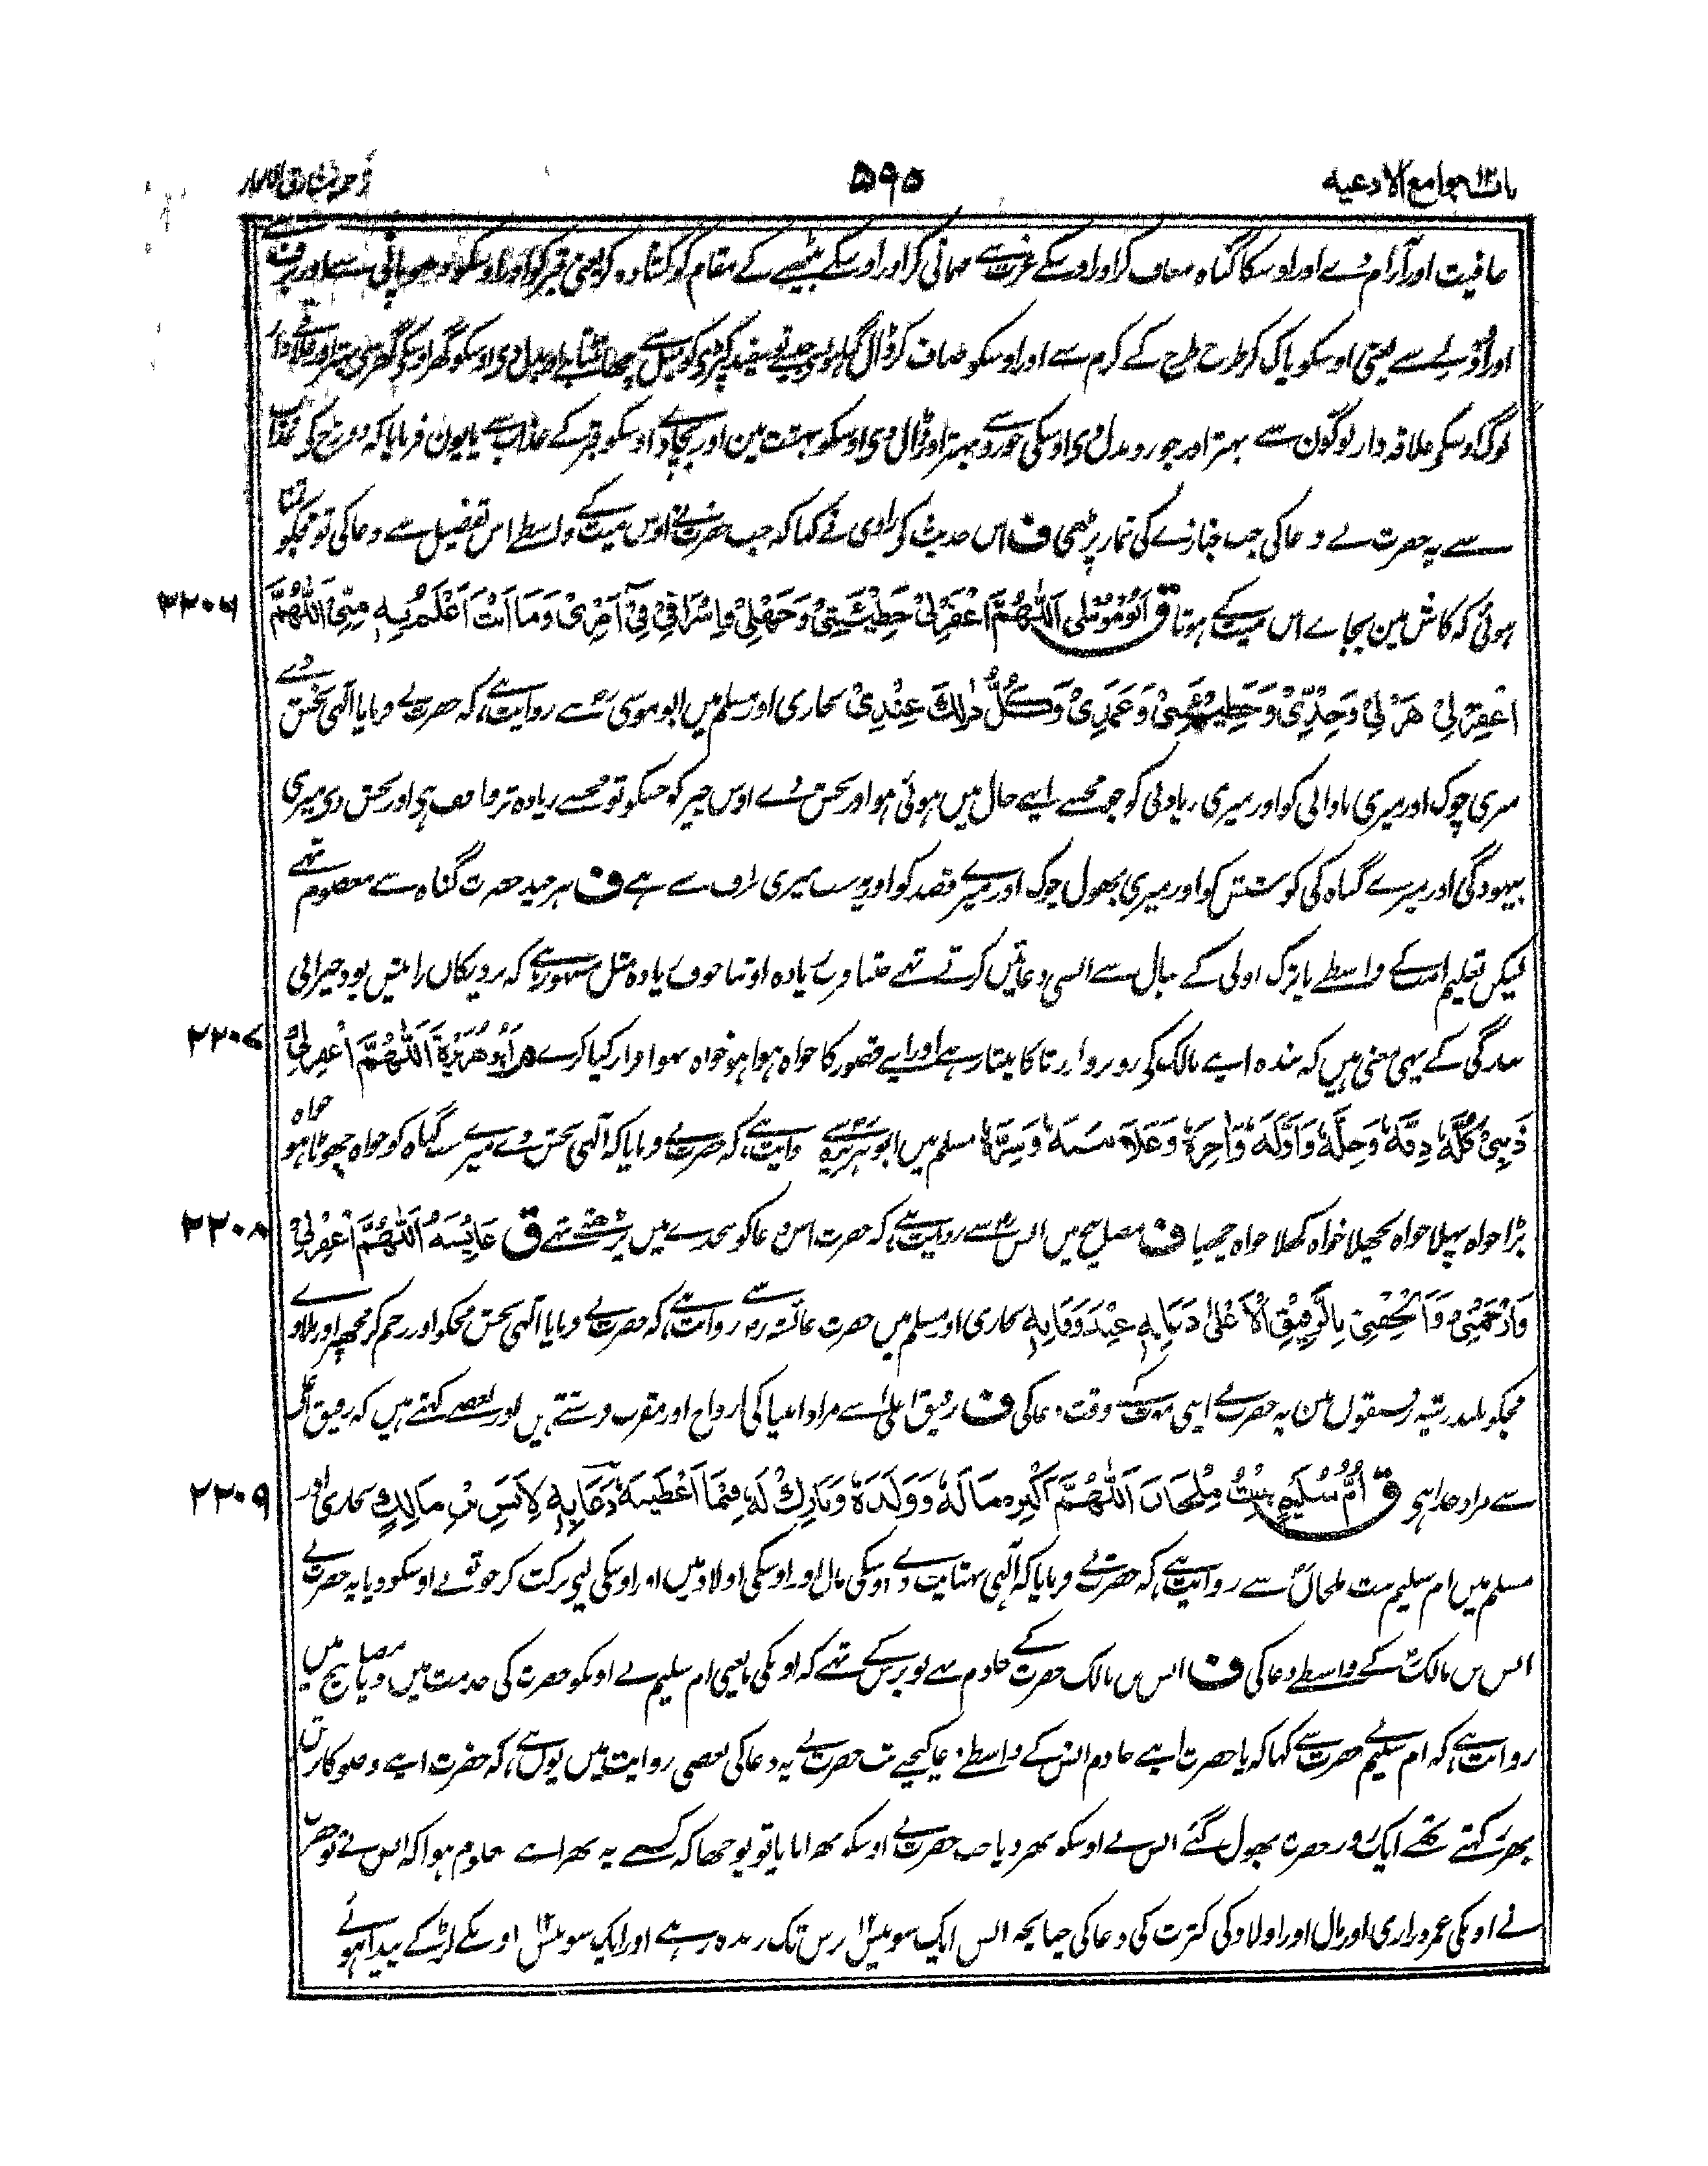 باب۱۲ جوامع الادعیہ
۵۹۵
عافیت اور آرام دے اور اوسکا گناہ معاف کر اور اوسکے عزت سے مہمانی کر اور اوسکے بیٹھنے کے مقام کو کشادہ کر یعنی قبر کو اور اوسکو دھو پانی سے اور برف سے
اور اولے سے یعنی اوسکو پاک کر طرح طرح کے کرم سے اور اوسکو صاف کر ڈال گناہوں سے جیسے تو سفید کپڑی کو میل سے چھانٹتا ہے اور بدل دی اوسکو گھر اوسکے گھر سے بہتر اور علاقہ دار
لوگ اوسکے علاقہ دار لوگون سے بہتر اور جورو بدل دی اوسکی جورو سے بہتر اور ڈال دی اوسکو بہشت مین اور بچا دے اوسکو قبر کے عذاب سے یا یون فرمایا کہ دوزخ کے عذاب
سے یہ حضرت نے دعا کی جب جنازے کی نماز پڑھی ف اس حدیث کی راوی نے کہا کہ جب حضرت نے اوس میت کے واسطے اس تفصیل سے دعا کی تو مجکو تمنا
ہوئی کہ کاش مین بجاے اس میت کے ہوتا ق اَبُو مُوْسٰی اَللّٰهُمَّ اغْفِرْلِیْ خَطِیْئَتِیْ وَجَهْلِیْ وَاِسْرَافِیْ فِیْ اَمْرِیْ وَمَا اَنْتَ اَعْلَمُ بِهٖ مِنِّیْ اَللّٰهُمَّ
۲۲۰۶
اغْفِرْ لِیْ هَزْلِیْ وَجِدِّیْ وَخَطِیْئَتِیْ وَعَمَدِیْ وَكُلُّ ذٰلِكَ عِنْدِیْ بخاری اور مسلم میں ابو موسیٰ سے روایت ہے کہ حضرت نے فرمایا الٰہی بخش دے
میری چوک اور میری نادانی کو اور میری زیادتی کو جو مجھسے اپنے حال میں ہوئی ہو اور بخش دے اوس چیز کو جسکو تو مجھسے زیادہ تر واقف ہی اور بخش دی میری
بیہودگی اور میرے گناہ کی کوشش کو اور میری بھول چوک اور میرے قصد کو اور یہ سب میری طرف سے ہے ف ہر چند حضرت گناہ سے معصوم تہے
لیکن تعلیم امت کے واسطے یا ترک اولی کے خیال سے ایسی دعائیں کرتے تہے جتنا قرب زیادہ اوتنا خوف زیادہ مثل مشہور ہے کہ نزدیکاں را بیش بود حیرانی
بندگی کے یہی معنی ہیں کہ بندہ اپنے مالک کی روبرو لرزتا کانپتا رہے اور اپنے قصور کا خواہ ہوا ہو خواہ نہوا اقرار کیا کرے م اَبُو هُرَیْرَةَ اَللّٰهُمَّ اغْفِرْلِیْ
۲۲۰۷
ذَنْبِیْ كُلَّهٗ دِقَّهٗ وَجِلَّهٗ وَاَوَّلَهٗ وَاٰخِرَهٗ وَعَلَانِیَتَهٗ وَسِرَّهٗ مسلم میں ابو ہریرہ سے روایت ہے کہ حضرت نے فرمایا کہ الٰہی بخش دے میرے سب گناہ کو خواہ چھوٹا ہو خواہ
بڑا خواہ پہلا خواہ پچھلا خواہ کھلا خواہ چھپا ف مصابیح میں انس سے روایت ہے کہ حضرت اس دعا کو سجدے میں پڑھتے تہے ق عَائِشَةُ اَللّٰهُمَّ اغْفِرْلِیْ
۲۲۰۸
وَارْحَمْنِیْ وَاَلْحِقْنِیْ بِالرَّفِیْقِ الْاَعْلٰی دَعَا بِهٖ عِنْدَ وَفَاتِهٖ بخاری اور مسلم میں حضرت عائشہ رض سے روایت ہے کہ حضرت نے فرمایا الٰہی بخش مجکو اور رحم کر مجھپر اور ملا دے
مجکو بلند رتبہ رفیقوں مین یہ حضرت نے اپنی موت کے وقت دعا کی ف رفیق اعلیٰ سے مراد انبیا کی ارواح اور مقرب فرشتے ہیں اور بعضے کہتے ہیں کہ رفیق اعلیٰ
سے مراد خدا ہی ق اُمُّ سُلَیْمٍ بِنْتُ مِلْحَانَ اَللّٰهُمَّ اَكْثِرْ مَالَهٗ وَوَلَدَهٗ وَبَارِكْ لَهٗ فِیْمَا اَعْطَیْتَهٗ دَعَا بِهٖ لِاَنَسِ بْنِ مَالِكٍ بخاری اور
۲۲۰۹
مسلم میں ام سلیم بنت ملحان سے روایت ہے کہ حضرت نے فرمایا کہ الٰہی بہتایت دے اوسکی مال اور اوسکی اولاد میں اور اوسکی لیے برکت کر جو تونے اوسکو دیا یہ حضرت نے
انس بن مالک کے واسطے دعا کی ف انس بن مالک حضرت کے خادم تہے نو برس کے تہے کہ اونکی ما یعنی ام سلیم نے اونکو حضرت کی خدمت میں دیا مصابیح میں
روایت ہے کہ ام سلیم نے حضرت سے کہا کہ یا حضرت اپنے خادم انس کے واسطے دعا کیجیے تب حضرت نے یہ دعا کی بعضی روایت میں یوں ہے کہ حضرت اپنے وضو کا برتن
بھر رکھتے تھے ایک روز حضرت بھول گئے انس نے اوسکو بھر دیا جب حضرت نے اوسکو بھرا پایا تو پوچھا کہ کسنے یہ بھرا ہے معلوم ہوا کہ انس نے تو حضرت
نے اونکی عمر درازی اور مال اور اولاد کی کثرت کی دعا کی چنانچہ انس ایک سو بیس برس تک زندہ رہے اور ایک سو بیس اونکے لڑکے پیدا ہوئے